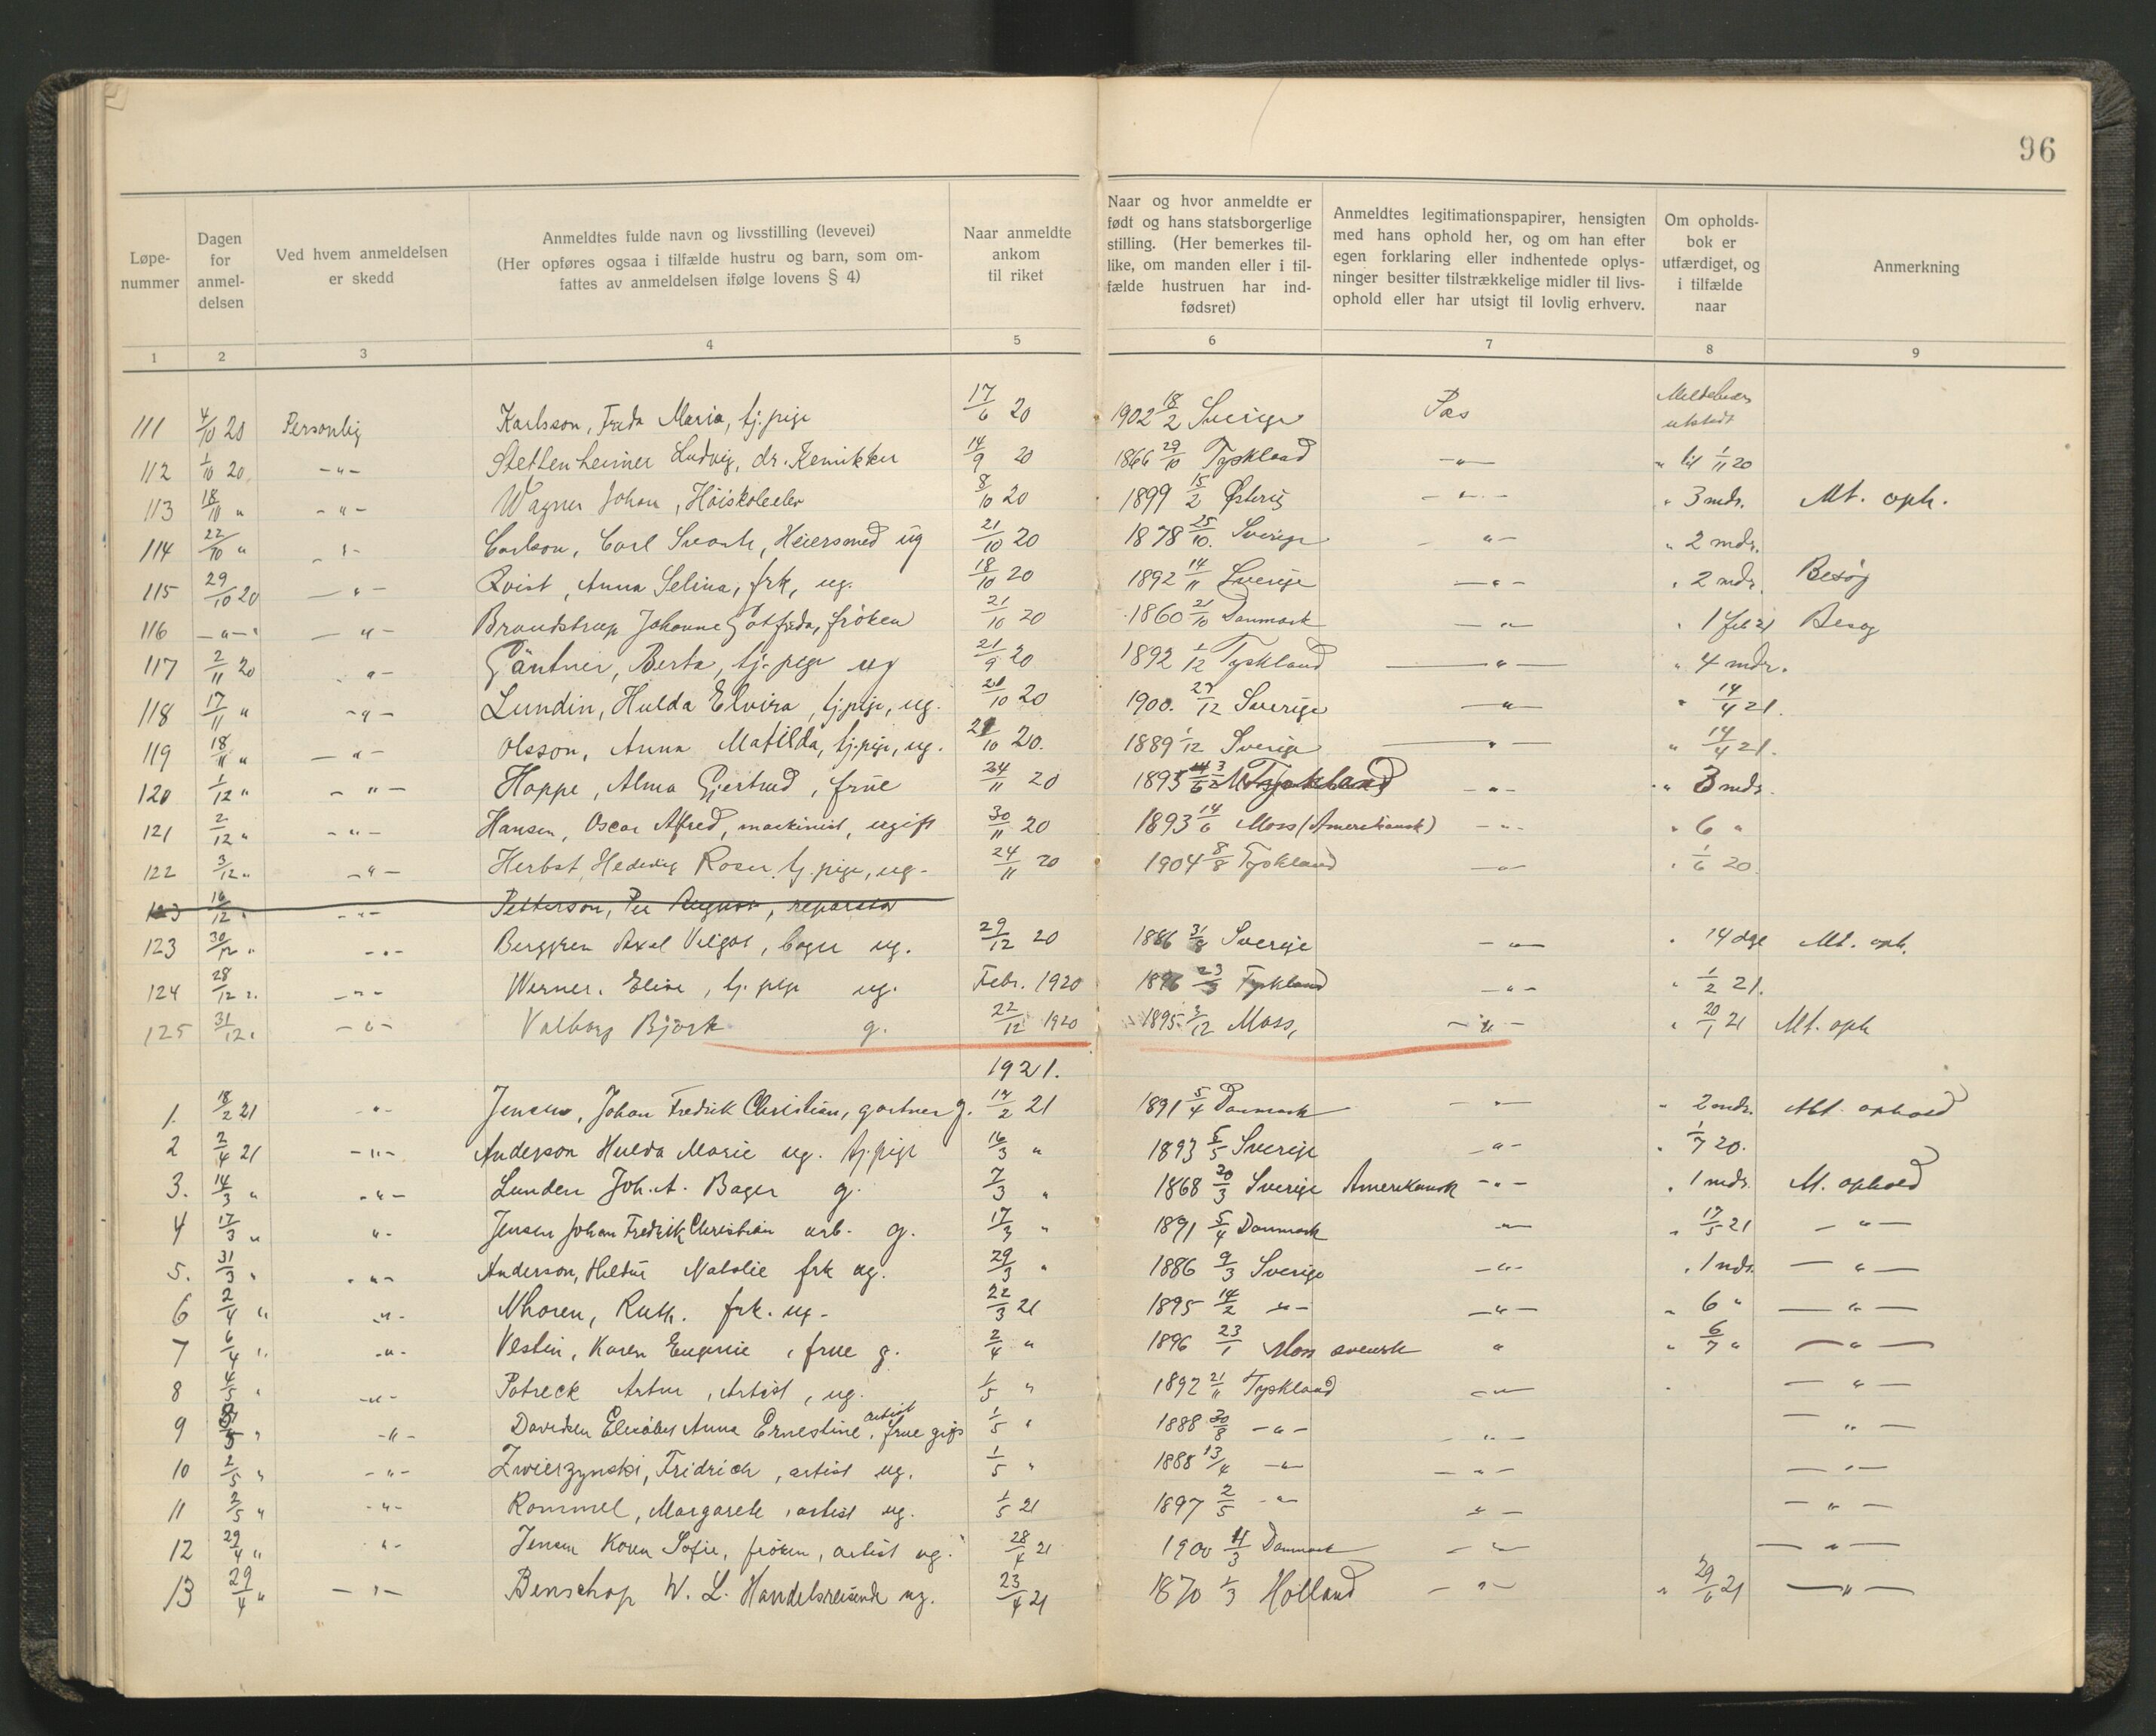 96
Løpe-nummer
Dagen for anmel-delsen
Ved hvem anmeldelsen er skedd
Anmeldtes fulde navn og livsstilling (levevei)
(Her opføres ogsaa i tilfælde hustru og barn, som om-
fattes av anmeldelsen ifølge lovens § 4)
Naar anmeldte ankom til riket
Naar og hvor anmeldte er
født og hans statsborgerlige
stilling. (Her bemerkes til-
like, om manden eller i til-
fælde hustruen har ind-
fødsret)
Anmeldtes legitimationspapirer, hensigten
med hans ophold her, og om han efter
egen forklaring eller indhentede oplys-
ninger besitter tilstrækkelige midler til livs-
ophold eller har utsigt til lovlig erhverv.
Om opholds-
bok er
utfærdiget, og
i tilfælde
naar
Anmerkning
1 2 3 4 5 6 7 8 9
111 4/10 20 Personlig Karlsson, Frida Maria, tj.pige 17/6 20 1902 18/2 Sverige Pas utstedt
112 1/10 20 -"- Stettenheimer Ludvig, dr. Kemikker 14/9 20 1866 29/10 Tyskland -"- " til 1/11 20
113 18/10 " -"- Wagner Johan, Höiskoleelev 8/10 20 1899 15/2 Østerig -"- " 3 mdr. Mt. oph.
114 22/10 " -"- Carlson, Carl Svante, ug 21/10 20 1878 25/10. Sverige -"- " 2 mdr.
115 29/10 20 -"- Qvist, Anna Selina, frk, ug. 18/10 20 1892 14/11 Sverige -"- " 2 mdr. Besøg
116 -"- -"- Brandstrup Johanne Gotfreda, fröken 21/10 20 1860 21/10 Danmark -"- " 1 feb 21 Besøg
117 2/11 20 -"- Gäntner, Berta, tj.pige ug 21/9 20 1892 1/12 Tyskland -"- " 4 mdr.
118 17/11 " -"- Lundin, Hulda Elvira, tj.pige, ug. 20 1900. 27/12 Sverige -"- " 14/4 21.
119 18/11 " -"- Olsson, Anna Matilda, tj.pige, ug. 10 20. 1889 1/12 Sverige -"- " 14/4 21.
120 1/12 " -"- Hoppe, Alma Gjertrud, frue 24/11 20 1893 Tyskland -"- " 3 mdr.
121 2/12 " -"- Hansen, Oscar Alfred, maskinist, ugift 30/11 20 1893 14/6 Moss (Amerikansk) -"- " 6 "
122 3/12 " -"- Herbst, Hedevig Rosen, tj.pige, ug. 24/11 20 1904 8/8 Tyskland -"- " 1/6 20.
123 16/12 " -"- Petterson, Per August, reparatør
123 30/12 " -"- Berggren Axel Valgot, bager ug. 29/12 20 1886 31/8 Sverige -"- " 14 dge Mt. oph.
124 28/12 " -"- Werner, Elise, tj.pige ug. Febr. 1920 1896 23 Tyskland -"- " 1/2 21.
125 31/12 " -"- Valborg Björk g. 22/12 1920 1895 3/12 Moss, -"- " 20/1 21 Mt. oph
1921.
1. 18/2 21 -"- Jensen, Johan Fredrik Christian, gartner g. 14/2 21 1891 5/4 Danmark -"- " 2 mdr. Mt. ophold
2 2/4 21 -"- Anderson Hulda Marie ug. tj.pige 16/3 " 1893 6/5 Sverige -"- " 1/7 20.
3. 14/3 " -"- Lunden Joh.A. Bager g. 7/3 " 1868 20/3 Sverige Amerikansk -"- " 1 mdr. M. ophold
4 17/3 " "- Jensen Johan Fredrik Christian arb. g. 17/3 " 1891 5/4 Danmark -"- " 17/5 21 -"-
5. 31/3 " -"- Anderson, Natalie frk ug. 29/3 " 1886 9/3 Sverige -"- " 1 mdr. -"-
6 2/4 " -"- Nhoren, Ruth. frk. ug- 22/3 21 1895 14/2 -"- -"- " 6 " -"-
7 6/4 " -"- Vestin, Karen Eugenie, frue g. 2/4 " 1896 23/1 Moss svensk " " 6/7 " -"-
8 4/5 " -"- Potreck Artur, Artist, ug. 1/5 " 1892 21/11 Tyskland -"- -"-
artist
9 " -"- Davidsen Elisabet Anna Ernestine, frue gift 1/5 " 1888 30/8 -"- -"- -"-
10 2/5 " -"- Zwierzynski, Fridrich, artist ug. 1/5 " 1888 13/4 -"- -"- -"-
11 2/5 " -"- Rommel, Margarete, artist ug. 1/5 21 1897 2/5 -"- -"- -"-
12 29/4 " "- Jensen Karen Sofie, fröken, artist ug. 28/4 21 1900 11/3 Danmark -"- -"-
13 29/4 " -"- Benschop W. L. Handelsreisende ug. 23/4 21 1870 1/3 Holland -"- " 29/6 21 -"-